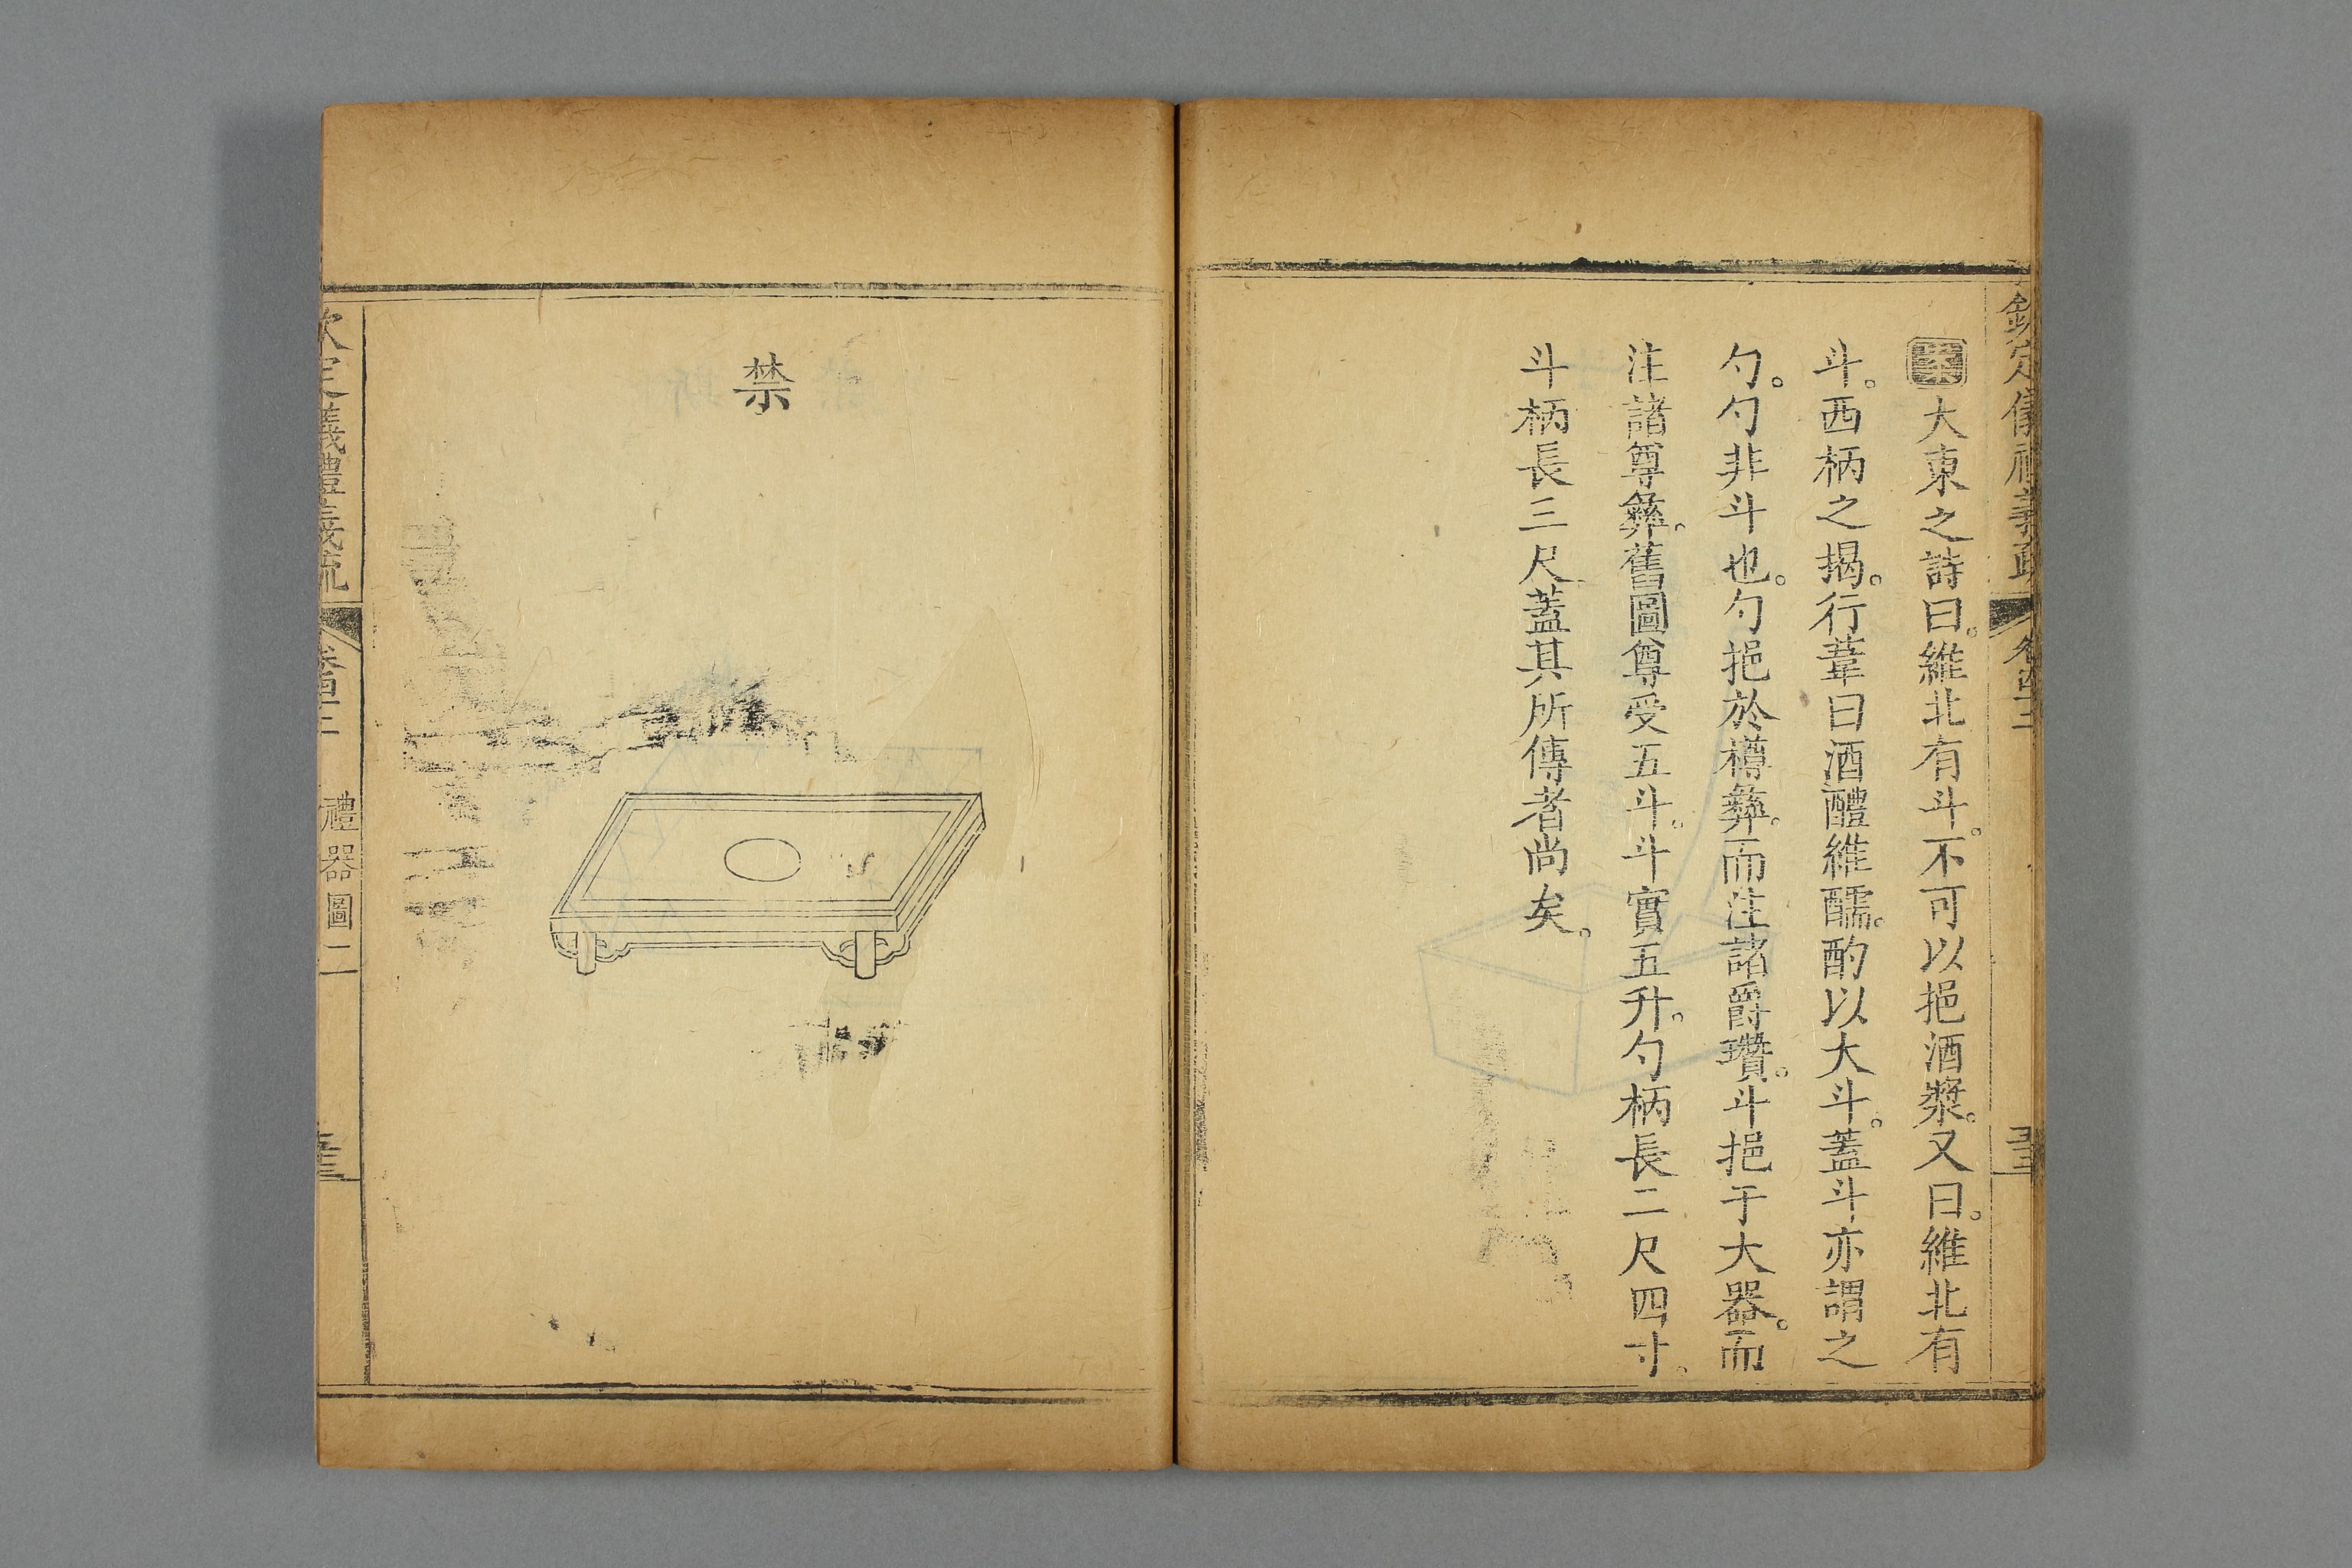 欽定儀禮義疏 卷四十三
案大東之詩曰。維北有斗。不可以挹酒漿。又曰。維北有
斗。西柄之揭。行葦曰酒醴維醹。酌以大斗。蓋斗亦謂之
勺。勺非斗也。勺挹於樽彝。而注諸爵瓚。斗挹于大器。而
注諸尊彝。舊圖尊受五斗。斗實五升。勺柄長二尺四寸。
斗柄長三尺。蓋其所傳者尚矣。
禁
欽定儀禮義疏 禮器圖二